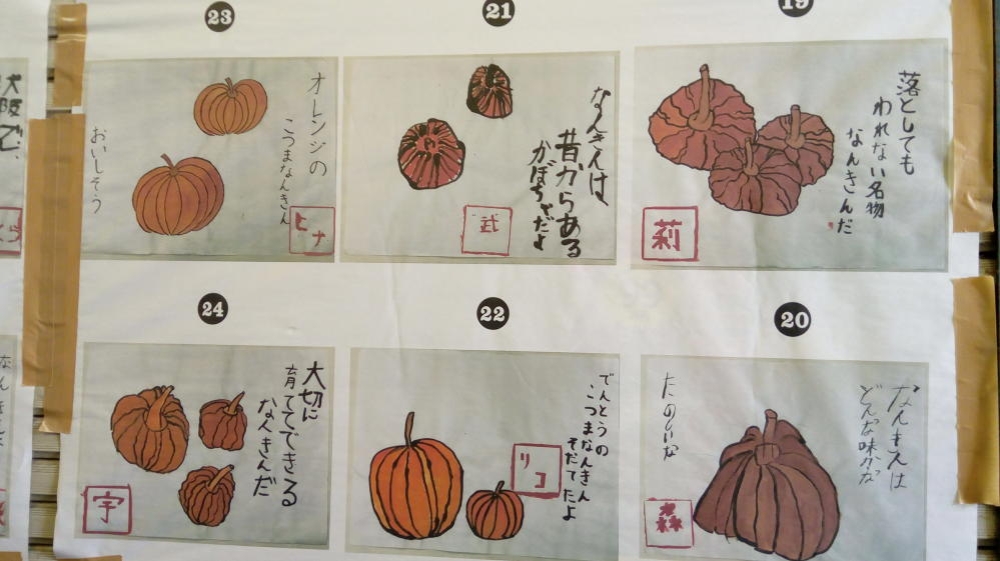 19
落としても
われない名物
なんきんだ
莉
21
なんきんは
昔からある
かぼちゃだよ
武
23
オレンジの
こつまなんきん
おいしそう
ヒナ
大阪で、
20
なんきんは
どんな味かな
たのしいな
森
22
でんとうの
こつまなんきん
そだてたよ
リコ
24
大切に
育ててできる
なんきんだ
宇